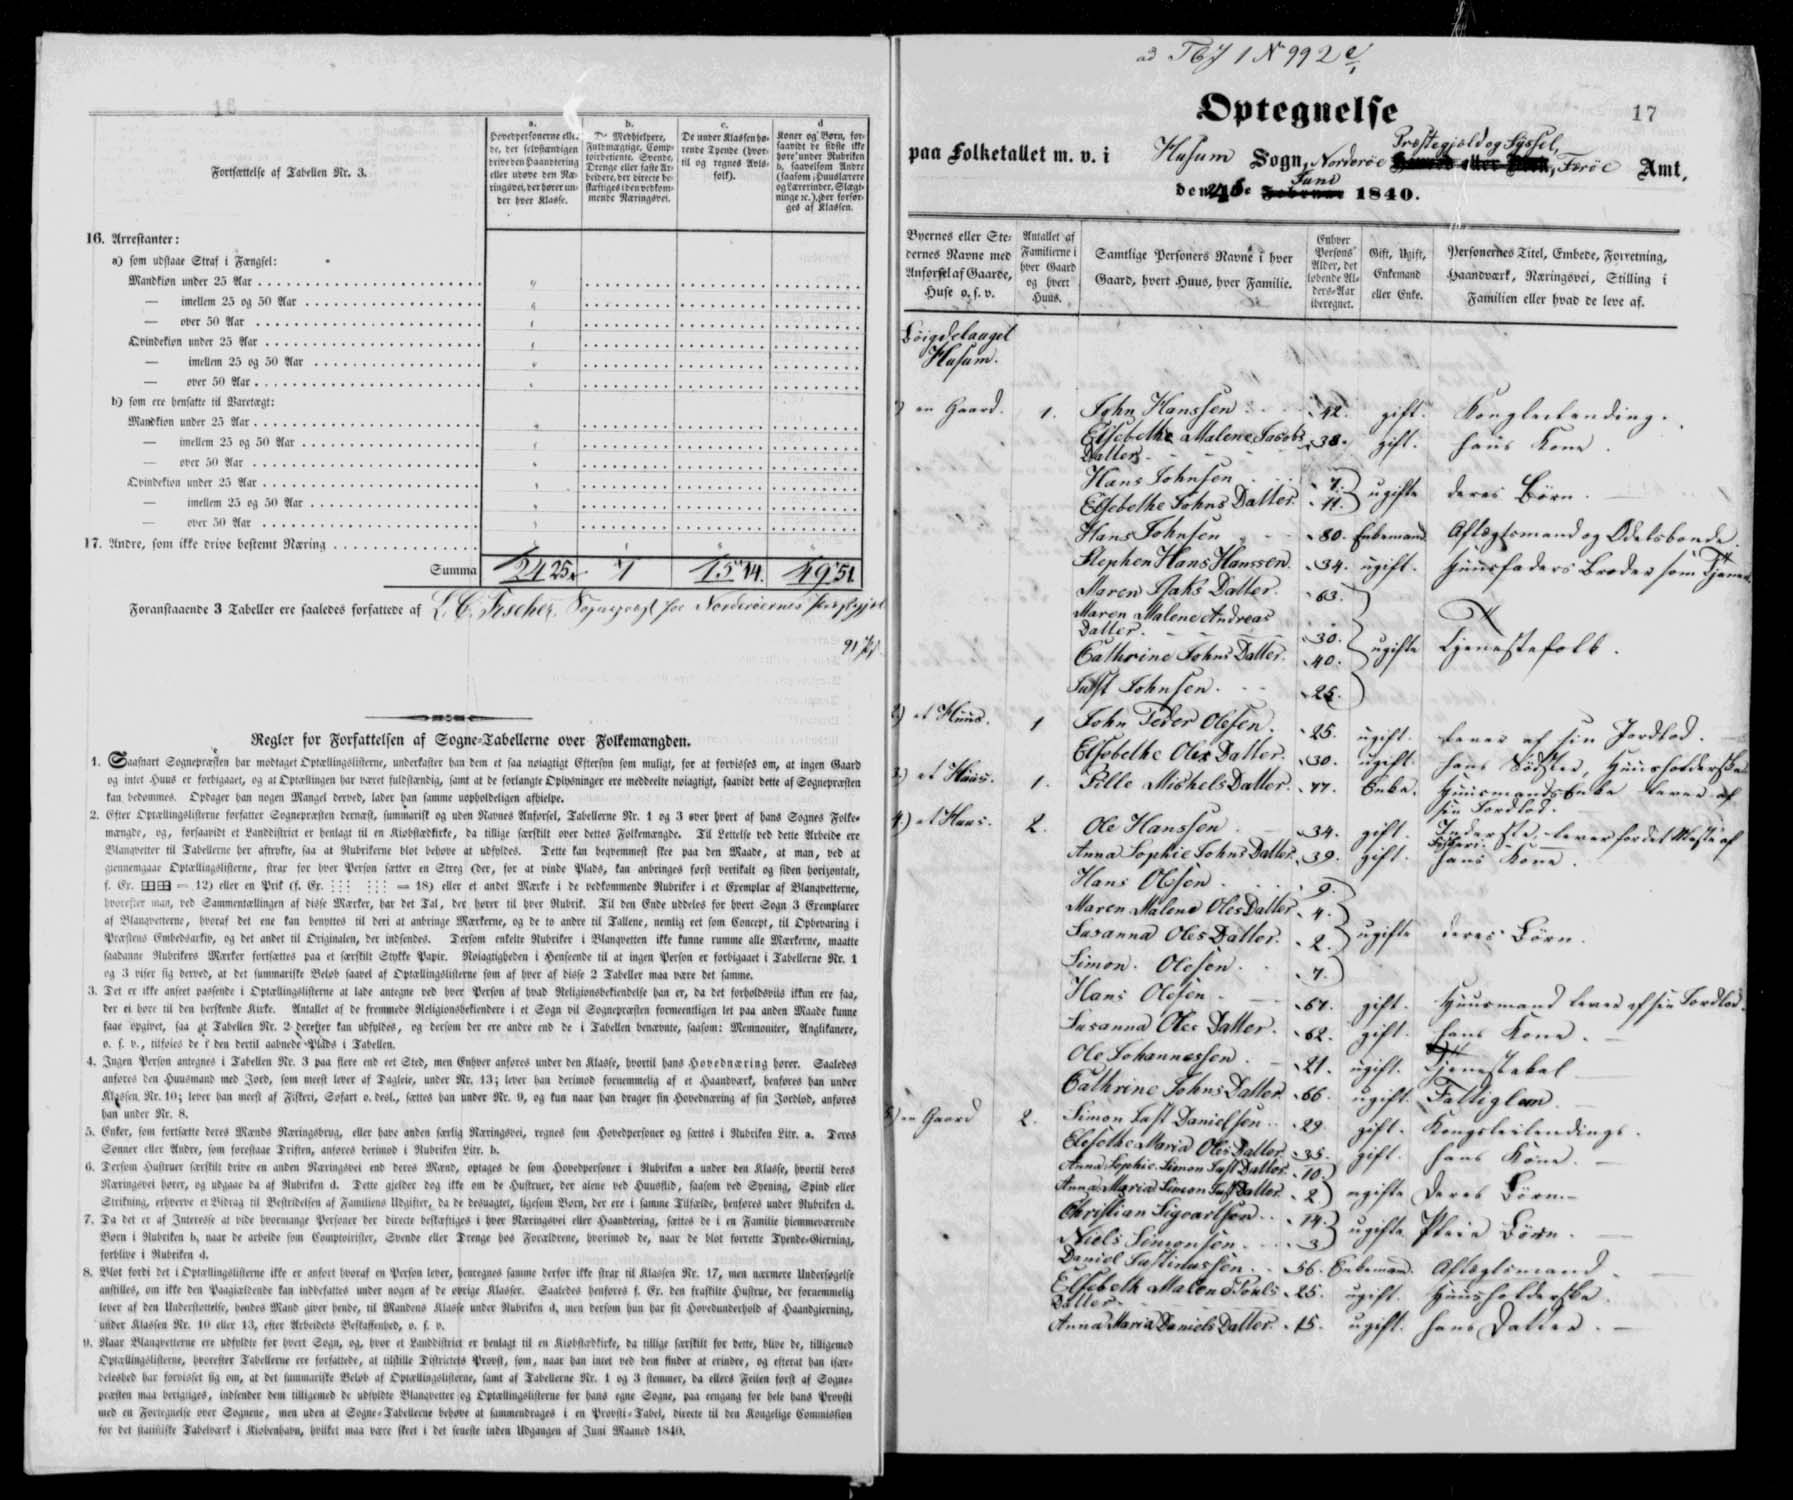 16
Fortsættelse af Tabellen Nr. 3.
a.
Hovedpersonerne eller
de, der selvstændigen
drive den Haandtering
eller udøve den Næ-
ringsvei, der hører un-
der hver Klasse.
b.
De Medhjelpere,
Fuldmægtige, Comp-
toirbetiente, Svende,
Drenge eller faste Ar-
beidere, der directe be-
skæftiges i den vedkom-
mende Næringsvei.
c.
De under Klassen hø-
rende Tyende (hvor-
til og regnes Avls-
folk).
d
Koner og Børn, for-
saavidt de sidste ikke
høre under Rubriken
b, saavelsom Andre
(saasom Huuslærere
og Lærerinder, Slægt-
ninge ꝛc.), der forsør-
ges af Klassen.
16. Arrestanter:
a) som udstaae Straf i Fængsel:
Mandkiøn under 25 Aar
— imellem 25 og 50 Aar
— over 50 Aar
Qvindekiøn under 25 Aar
— imellem 25 og 50 Aar
— over 50 Aar
b) som ere hensatte til Varetægt:
Mandkiøn under 25 Aar
— imellem 25 og 50 Aar
— over 50 Aar
Qvindekiøn under 25 Aar
— imellem 25 og 50 Aar
— over 50 Aar
17. Andre, som ikke drive bestemt Næring
Summa 24 25 1 15 14. 49 51
Foranstaaende 3 Tabeller ere saaledes forfattede af L. C. Trscher, Sognepræst for Norderøernes
Regler for Forfattelsen af Sogne-Tabellerne over Folkemængden.
1. Saasnart Sognepræsten har modtaget Optællingslisterne, underkaster han dem et saa nøiagtigt Eftersyn som muligt, for at forvisses om, at ingen Gaard
og intet Huus er forbigaaet, og at Optællingen har været fuldstændig, samt at de forlangte Oplysninger ere meddeelte nøiagtigt, saavidt dette af Sognepræsten
kan bedømmes. Opdager han nogen Mangel derved, lader han samme uopholdeligen afhielpe.
2. Efter Optællingslisterne forfatter Sognepræsten dernæst, summarisk og uden Navnes Anførsel, Tabellerne Nr. 1 og 3 over hvert af hans Sognes Folke-
mængde, og, forsaavidt et Landdistrict er henlagt til en Kiøbstædkirke, da tillige særskilt over dettes Folkemængde. Til Lettelse ved dette Arbeide ere
Blanqvetter til Tabellerne her aftrykte, saa at Rubrikerne blot behøve at udfyldes. Dette kan beqvemmest skee paa den Maade, at man, ved at
giennemgaae Optællingslisterne, strax for hver Person sætter en Streg (der, for at vinde Plads, kan anbringes først vertikalt og siden horizontalt,
f. Ex. = 12) eller en Prik (f. Ex. = 18) eller et andet Mærke i de vedkommende Rubriker i et Exemplar af Blanqvetterne,
hvorefter man, ved Sammentællingen af disse Mærker, har det Tal, der hører til hver Rubrik. Til den Ende uddeles for hvert Sogn 3 Exemplarer
af Blanqvetterne, hvoraf det ene kan benyttes til deri at anbringe Mærkerne, og de to andre til Tallene, nemlig eet som Concept, til Opbevaring i
Præstens Embedsarkiv, og det andet til Originalen, der indsendes. Dersom enkelte Rubriker i Blanqvetten ikke kunne rumme alle Mærkerne, maatte
saadanne Rubrikers Mærker fortsættes paa et særskilt Stykke Papir. Nøiagtigheden i Henseende til at ingen Person er forbigaaet i Tabellerne Nr. 1
og 3 viser sig derved, at det summariske Beløb saavel af Optællingslisterne som af hver af disse 2 Tabeller maa være det samme.
3. Det er ikke anseet passende i Optællingslisterne at lade antegne ved hver Person af hvad Religionsbekiendelse han er, da det forholdsviis ikkun ere faa,
der ei høre til den herskende Kirke. Antallet af de fremmede Religionsbekiendere i et Sogn vil Sognepræsten formeentligen let paa anden Maade kunne
faae opgivet, saa at Tabellen Nr. 2 derefter kan udfyldes, og dersom der ere andre end de i Tabellen benævnte, saasom: Mennoniter, Anglikanere,
o. s. v., tilføies de i den dertil aabnede Plads i Tabellen.
4. Ingen Person antegnes i Tabellen Nr. 3 paa flere end eet Sted, men Enhver anføres under den Klasse, hvortil hans Hovednæring hører. Saaledes
anføres den Huusmand med Jord, som meest lever af Dagleie, under Nr. 13; lever han derimod fornemmelig af et Haandværk, henføres han under
Klassen Nr. 10; lever han meest af Fiskeri, Søfart o. desl., sættes han under Nr. 9, og kun naar han drager sin Hovednæring af sin Jordlod, anføres
han under Nr. 8.
5. Enker, som fortsætte deres Mænds Næringsbrug, eller have anden særlig Næringsvei, regnes som Hovedpersoner og sættes i Rubriken Litr. a. Deres
Sønner eller Andre, som forestaae Driften, anføres derimod i Rubriken Litr. b.
6. Dersom Hustruer særskilt drive en anden Næringsvei end deres Mænd, optages de som Hovedpersoner i Rubriken a under den Klasse, hvortil deres
Næringsvei hører, og udgaae da af Rubriken d. Dette gjelder dog ikke om de Hustruer, der alene ved Huusflid, saasom ved Syening, Spind eller
Strikning, erhverve et Bidrag til Bestridelsen af Familiens Udgifter, da de desuagtet, ligesom Børn, der ere i samme Tilfælde, henføres under Rubriken d.
7. Da det er af Interesse at vide hvormange Personer der directe beskæftiges i hver Næringsvei eller Haandtering, sættes de i en Familie hiemmeværende
Børn i Rubriken b, naar de arbeide som Comptoirister, Svende eller Drenge hos Forældrene, hvorimod de, naar de blot forrette Tyende-Gierning,
forblive i Rubriken d.
8. Blot fordi det i Optællingslisterne ikke er anført hvoraf en Person lever, henregnes samme derfor ikke strax til Klassen Nr. 17, men nærmere Undersøgelse
anstilles, om ikke den Paagjældende kan indbefattes under nogen af de øvrige Klasser. Saaledes henføres f. Ex. den fraskilte Hustrue, der fornemmelig
lever af den Understøttelse, hendes Mand giver hende, til Mandens Klasse under Rubriken d, men dersom hun har sit Hovedunderhold af Haandgierning,
under Klassen Nr. 10 eller 13, efter Arbeidets Beskaffenhed, o. s. v.
9. Naar Blanqvetterne ere udfyldte for hvert Sogn, og, hvor et Landdistrict er henlagt til en Kiøbstædkirke, da tillige særskilt for dette, blive de, tilligemed
Optællingslisterne, hvorefter Tabellerne ere forfattede, at tilstille Districtets Provst, som, naar han intet ved dem finder at erindre, og efterat han især-
deleshed har forvisset sig om, at det summariske Beløb af Optællingslisterne, samt af Tabellerne Nr. 1 og 3 stemmer, da ellers Feilen først af Sogne-
præsten maa berigtiges, indsender dem tilligemed de udfyldte Blanqvetter og Optællingslisterne for hans egne Sogne, paa eengang for hele hans Provsti
med en Fortegnelse over Sognene, men uden at Sogne-Tabellerne behøve at sammendrages i en Provsti-Tabel, directe til den Kongelige Commission
for det statistiske Tabelværk i Kiøbenhavn, hvilket maa være skeet i det seneste inden Udgangen af Juni Maaned 1840.
17
Optegnelse
paa Folketallet m. v. i Husum Sogn, Norderøe Præstegjeld og Syssel, Færøe Amt,
den Juni 1840.
Byernes eller Ste-
dernes Navne med
Anførsel af Gaarde,
Huse o. s. v.
Antallet af
Familierne i
hver Gaard
og hvert
Huus.
Samtlige Personers Navne i hver
Gaard, hvert Huus, hver Familie.
Enhver
Persons
Alder, det
løbende Al-
ders-Aar
iberegnet.
Gift, Ugift,
Enkemand
eller Enke.
Personernes Titel, Embede, Forretning,
Haandværk, Næringsvei, Stilling i
Familien eller hvad de leve af.
Bøigdelauget
Husum.
1) en Gaard. 1. John Hanssen 42. gift. Kongsleilending.
Elsebethe Malene Jacobs Datter 38. gift. hans Kone.
Hans Johnsen 7. ugifte deres Børn.
Elsebethe Johns Datter. 11.
Hans Johnsen 80. Enkemand Aftægtsmand og Odelsbonde.
Stephen Hans Hanssen. 34. ugift. Huusfaders Broder som Tjener
Maren Isaks Datter. 63.
Maren Malene Andreas Datter. 30. ugifte Tjenestefolk.
Cathrine Johns Datter. 40.
Just Johnsen. 25.
2) et Huus. 1 John Peder Olesen. 25. ugift. lever af sin Jordlod.
Elsebethe Oles Datter. 30. ugift. hans Sødster, Huusholderske
3.) et Huus. 1. Pille Michels Datter. 77. Enke. Huusmandsenke lever af
sin Jordlod.
4.) et Huus. 2. Ole Hanssen 34. gift. Inderste, lever for det Meste af
Fiskeri.
Anna Sophie Johns Datter 39. gift. hans Kone.
Hans Olesen 9.
Maren Malene Oles Datter 4. ugifte deres Børn.
Susanna Oles Datter. 2.
Simon. Olesen. 7.
Hans Olesen. 67. gift. Huusmand lever af sin Jordlod.
Susanna Oles Datter. 62. gift. hans Kone.
Ole Johannessen. 21. ugift. Tjenestekarl
Cathrine Johns Datter 66. ugift. Fattiglem.
5.) en Gaard 2. Simon Just Danielsen 29 gift. Kongsleilending.
Elsebethe Maria Oles Datter. 35. gift. hans Kone.
Anna Sophie Simon Just Datter. 10.
Anna Maria Simon Just Datter. 2. ugifte deres Børn.
Christian Sigvartsen 14. ugifte Pleie Børn.
Niels Simonsen. 3
Daniel Justinussen. 56. Enkemand. Aftægtsmand.
Elsebeth Malene Pouls Datter. 25. ugift. Huusholderske.
Anna Maria Daniels Datter. 15. ugift. hans Datter.